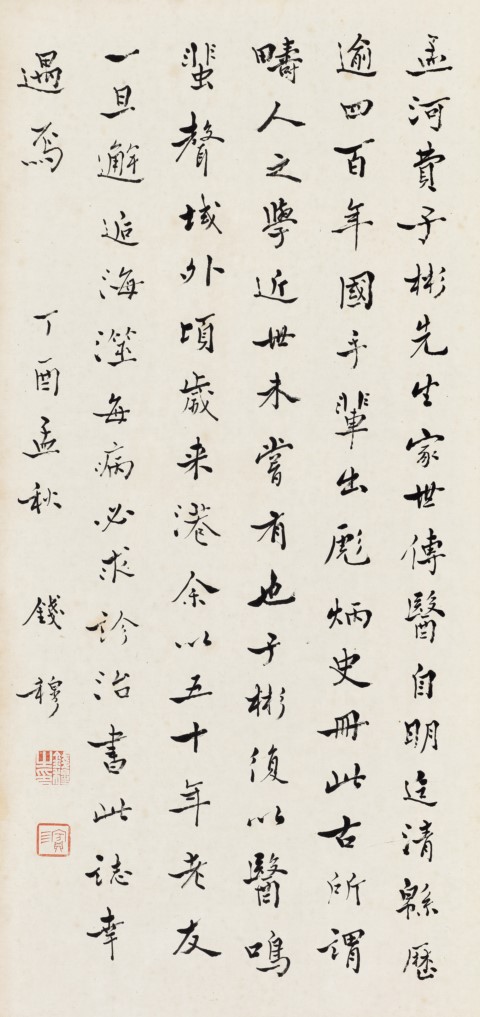 孟河費子彬先生家世傳醫自明迄清緜歷
逾四百年國手輩出彪炳史冊此古所謂
疇人之學近世未嘗有也子彬復以醫鳴
蜚聲域外頃歲来港余以五十年老友
一旦邂逅海澨每病必求診治書此誌幸
遇焉
丁酉孟秋 錢穆